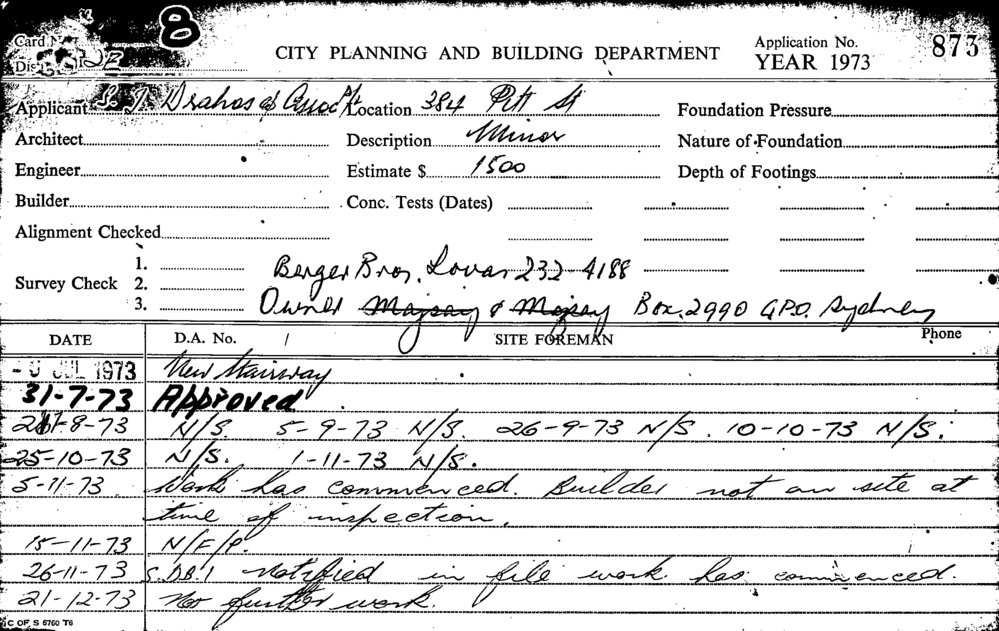 8
Card No.
CITY PLANNING AND BUILDING DEPARTMENT
Application No. 873
YEAR 1973
Applicant S. J. Drahos & Assoc P/L Location 384 Pitt St Foundation Pressure
Architect Description Minor Nature of Foundation
Engineer Estimate $ 1500 Depth of Footings
Builder Conc. Tests (Dates)
Alignment Checked
Survey Check 1.
2. Berger Bros. 232-4188
3. Owner Box 2990 GPO. Sydney
DATE D.A. No. / SITE FOREMAN Phone
JUL 1973 New Stairway
31-7-73 Approved
8-73 N/S. 5-9-73 N/S. 26-9-73 N/S. 10-10-73 N/S.
25-10-73 N/S. 1-11-73 N/S.
5-11-73 Work has commenced. Builder not on site at
time of inspection.
15-11-73 N/F/P.
26-11-73 S.DB.1 notified in file work has commenced.
21-12-73 No further work.
C OF S 5760 T6